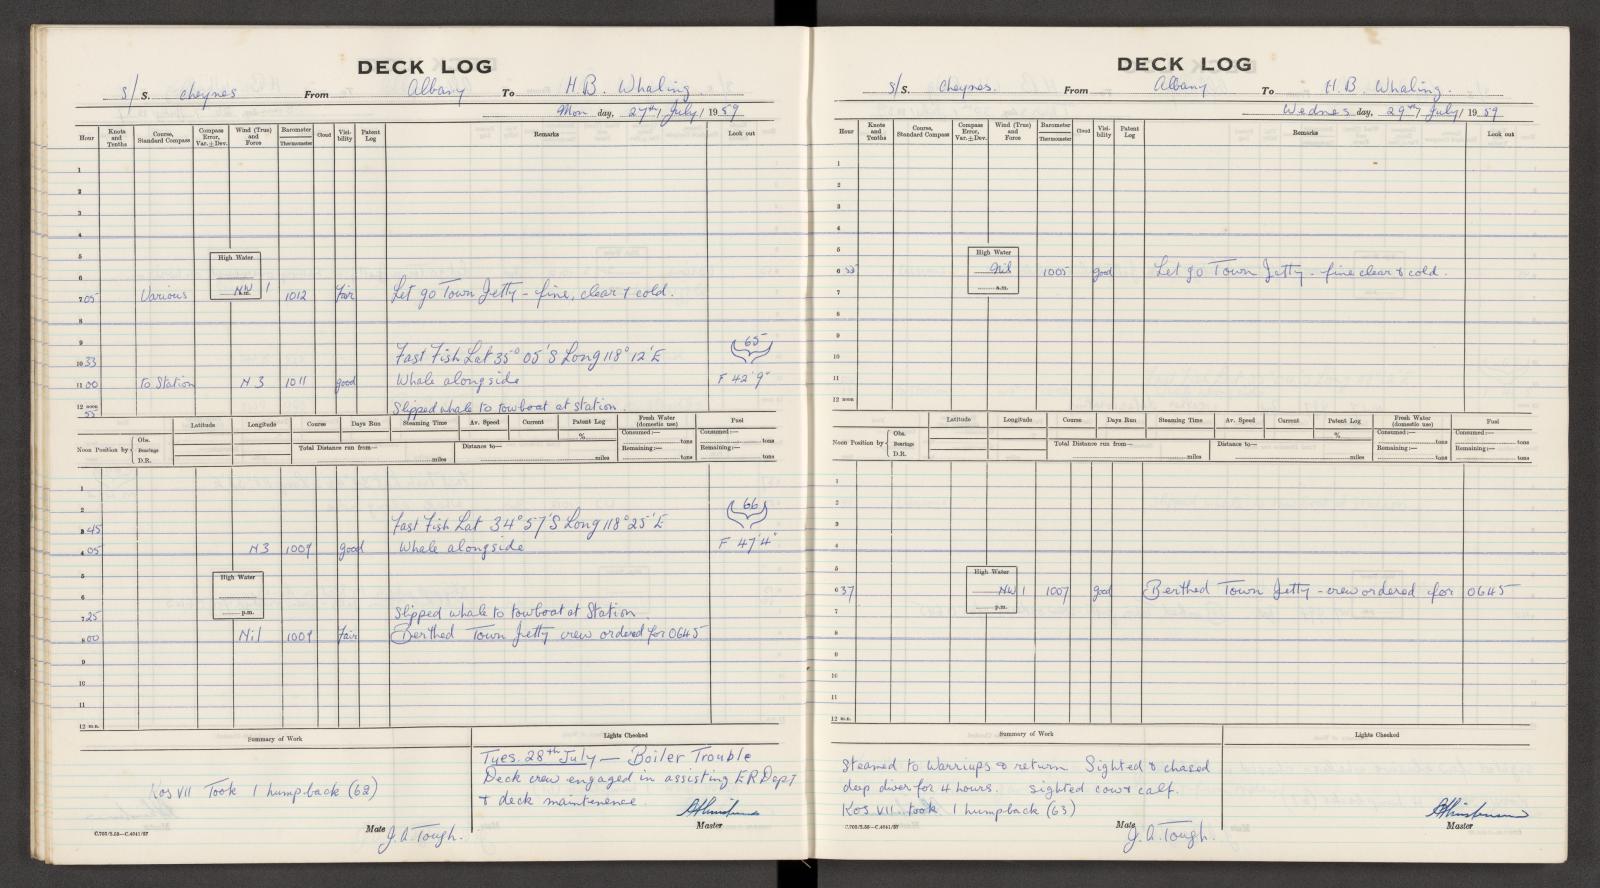 DECK LOG
s/S. Cheynes From Albany To H.B. Whaling.
Mon day, 27th July 1959
Hour Knots and Tenths Course, Standard Compass Compass Error, Var. ± Dev. Wind (True) and Force Barometer Thermometer Cloud Visibility Patent Log Remarks Look out
1
2
3
4
5 High Water
6
7 05 Various NW 1 a.m. 1012 Fair Let go Town Jetty - fine, clear & cold.
8
9 65
10 33 Fast Fish Lat 35° 05'S Long 118° 12'E
11 00 to Station N 3 1011 good Whale alongside F 42'9"
12 noon 55 Slipped whale to towboat at station.
Latitude Longitude Course Days Run Steaming Time Av. Speed Current Patent Log % Fresh Water (domestic use) Fuel
Consumed:— tons Consumed:— tons
Noon Position by Obs. Bearings D.R. Total Distance run from— miles Distance to— miles Remaining:— tons Remaining:— tons
1
2 66
3 45 Fast Fish Lat 34° 57'S Long 118° 25'E
4 05 N3 1009 good Whale alongside F 47'4"
5 High Water
6 p.m.
7 25 Slipped whale to towboat at Station
8 00 Nil 1009 Fair Berthed Town Jetty crew ordered for 0645
9
10
11
12 m.n.
Summary of Work Lights Checked
Tues. 28th July — Boiler Trouble
Deck crew engaged in assisting E R Dept
& deck maintenence.
Kos VII Took 1 humpback (62)
C.705/5.58—C.4041/57 Mate J. A. Tough. Master
DECK LOG
s/S. Cheynes. From Albany To H.B. Whaling.
Wednes day, 29th July 1959
Hour Knots and Tenths Course, Standard Compass Compass Error, Var. ± Dev. Wind (True) and Force Barometer Thermometer Cloud Visibility Patent Log Remarks Look out
1
2
3
4
5 High Water
6 55 Nil 1005 good Let go Town Jetty - fine clear & cold.
7 a.m.
8
9
10
11
12 noon
Latitude Longitude Course Days Run Steaming Time Av. Speed Current Patent Log % Fresh Water (domestic use) Fuel
Consumed:— tons Consumed:— tons
Noon Position by Obs. Bearings D.R. Total Distance run from— miles Distance to— miles Remaining:— tons Remaining:— tons
1
2
3
4
5 High Water
6 37 NW 1 1007 good Berthed Town Jetty - crew ordered for 0645
7 p.m.
8
9
10
11
12 m.n.
Summary of Work Lights Checked
Steamed to Warriups & return Sighted & chased
deep diver for 4 hours. sighted cow & calf.
Kos VII. took 1 humpback (63)
C.705/5.58—C.4041/57 Mate J. A. Tough. Master